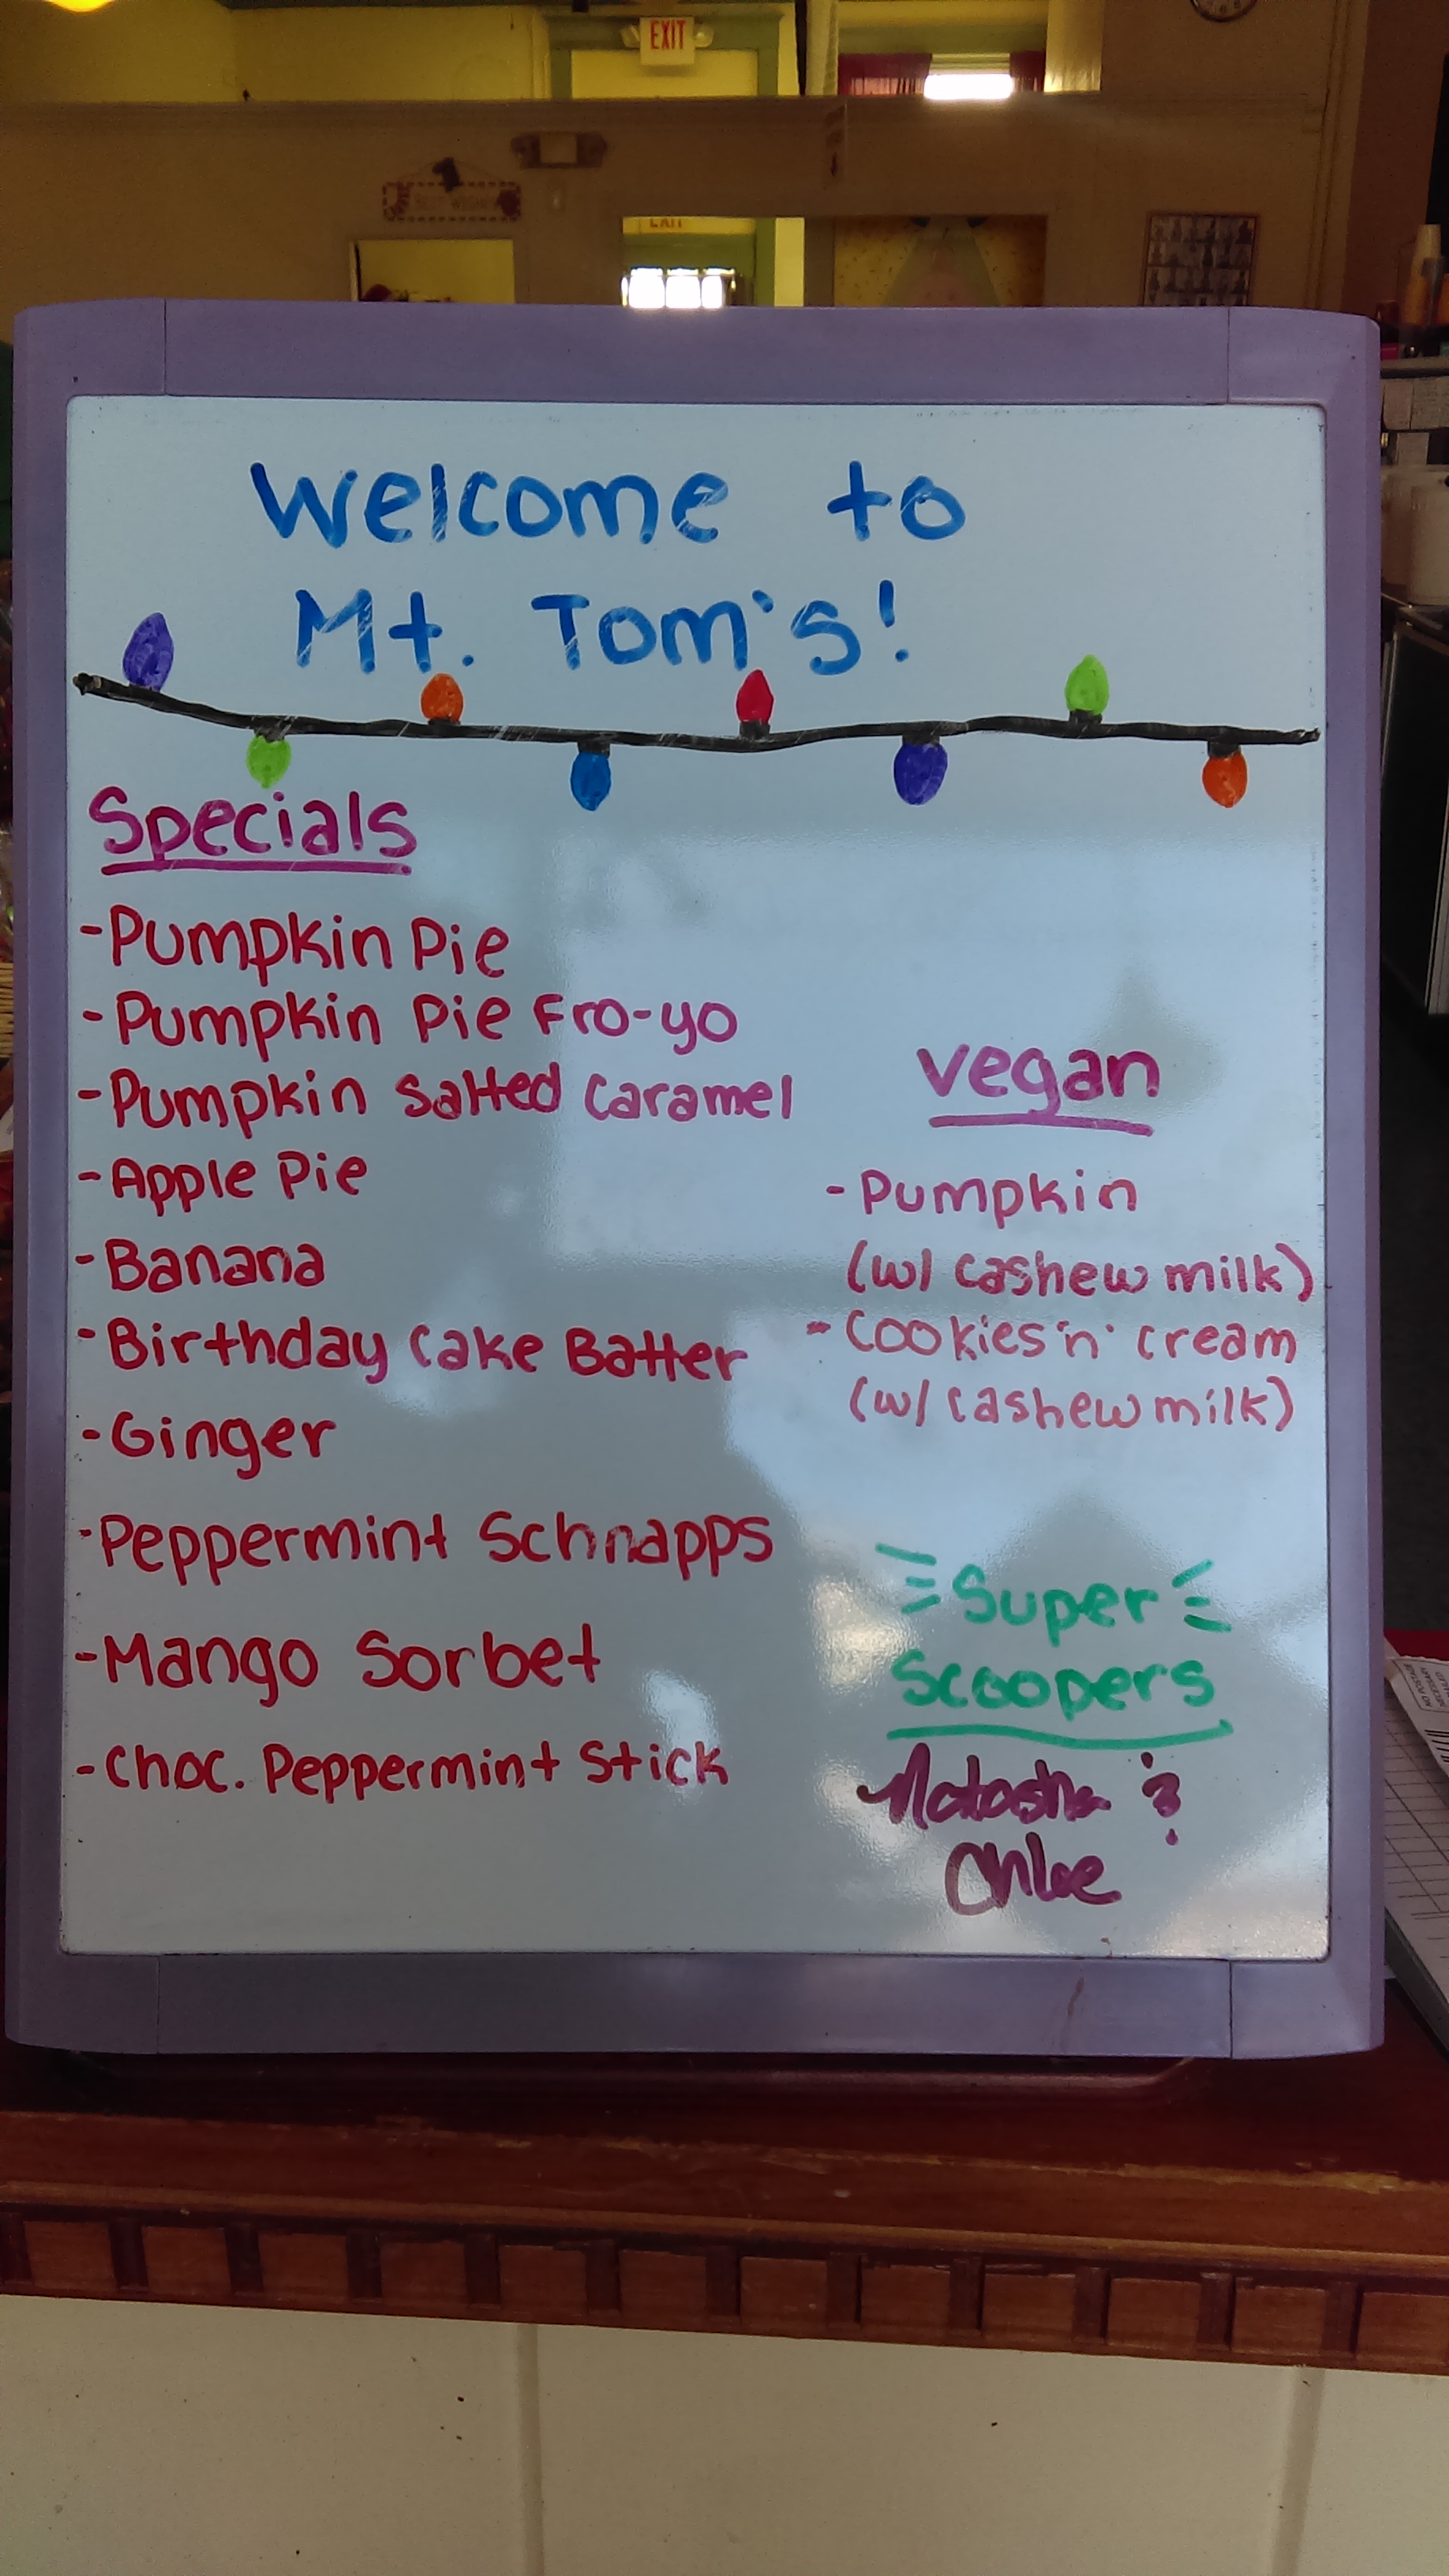 EXIT
EXIT
Welcome to
Mt. Tom's!
Specials
-Pumpkin Pie
-Pumpkin Pie Fro-yo
-Pumpkin Salted Caramel
-Apple Pie
-Banana
-Birthday Cake Batter
-Ginger
-Peppermint Schnapps
-Mango Sorbet
-Choc. Peppermint Stick
vegan
-Pumpkin
(w/ cashew milk)
-Cookies 'n' cream
(w/ cashew milk)
Super
Scoopers
Natasha &
Chloe
NO POSTAGE
NECESSARY